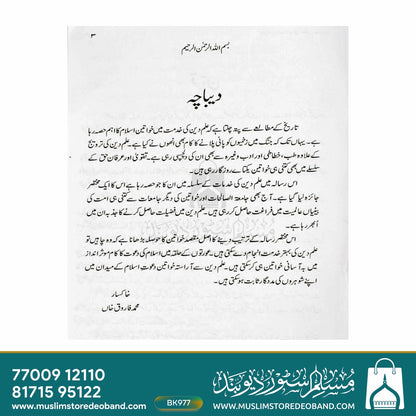 ۳
بسم اللہ الرحمٰن الرحیم
دیباچہ
تاریخ کے مطالعے سے پتہ چلتا ہے کہ علم دین کی خدمت میں خواتین اسلام کا اہم حصہ رہا
ہے۔ یہاں تک کہ جنگ میں زخمیوں کو پانی پلانے کا کام بھی انھوں نے کیا ہے۔ علم دین کی ترویج
کے علاوہ طب، خطاطی اور ادب وغیرہ سے بھی ان کی دلچسپی رہی ہے۔ تقویٰ اور عرفانِ حق کے
سلسلے میں بھی کتنی ہی خواتین یکتائے روزگار رہی ہیں۔
اس رسالہ میں علم دین کی خدمات کے سلسلہ میں ان کا جو حصہ رہا ہے اس کا ایک مختصر
جائزہ لیا گیا ہے۔ آج بھی جامعۃ الصالحات اور خواتین کی دیگر جامعات سے کتنی ہی امت کی
بیٹیاں عالمیت میں فراغت حاصل کر رہی ہیں۔ علم دین میں فضیلت حاصل کرنے کا جذبہ ان میں
ابھر رہا ہے۔
اس مختصر رسالہ کے ترتیب دینے کا اصل مقصد خواتین کا حوصلہ بڑھانا ہے کہ وہ چاہیں تو
علم دین کی بہتر خدمت انجام دے سکتی ہیں۔ عورتوں کے حلقہ میں اسلام کی دعوت کا کام موثر انداز
میں بہ آسانی خواتین ہی کر سکتی ہیں۔ علم دین سے آراستہ خواتین دعوت اسلام کے میدان میں
اپنے شوہروں کی مددگار ثابت ہو سکتی ہیں۔
خاکسار
محمد فاروق خاں
77009 12110
81715 95122
BK977
www.muslimstoredeoband.com
مسلم اسٹور دیوبند
WWW.MUSLIMSTOREDEOBAND.COM